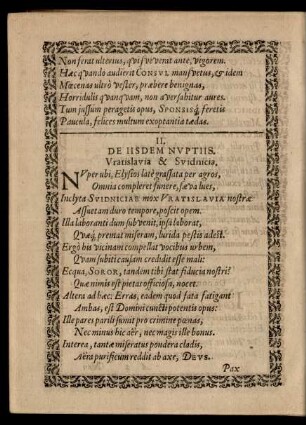 Non ferat ulterius, qui se venit ante, vigorem.
Hæc quando audierit CONSUL mansvetus, & idem
Mæcenas ultrò vester, præbere benignas,
Horridulis quanquam, non aversabitur aures.
Tum jussûm peragetis opus, SPONSISq́, feretis
Paucula, felices multum exoptantia tædas.
II.
DE IISDEM NVPTIIS.
Vratislavia & Svidnicia.
NVper ubi, Elysios latè grassata per agros,
Omnia compleret funere, sæva lues,
Inclyta SVIDNICIAE mox VRATISLAVIA nostræ
Assuetam duro tempore, poscit opem.
Illa laboranti dum subvenit, ipsa laborat,
Quæq́, premat miseram, lurida pestis adest.
Ergò his vicinam compellat vocibus urbem,
Quam subiti causam credidit esse mali:
Ecqua, SOROR, tandem tibi stat fiducia nostri?
Quæ nimis est pietas officiosa, nocet.
Altera ad hæc: Erras, eadem quod fata fatigant
Ambas, est Domini cuncti potentis opus:
Ille pares parili sumit pro crimine pœnas,
Nec minus hic aër, nec magis ille bonus.
Interea, tantæ miseratus pondera cladis,
Aëra purificum reddit ab axe, DEVS.
Pax